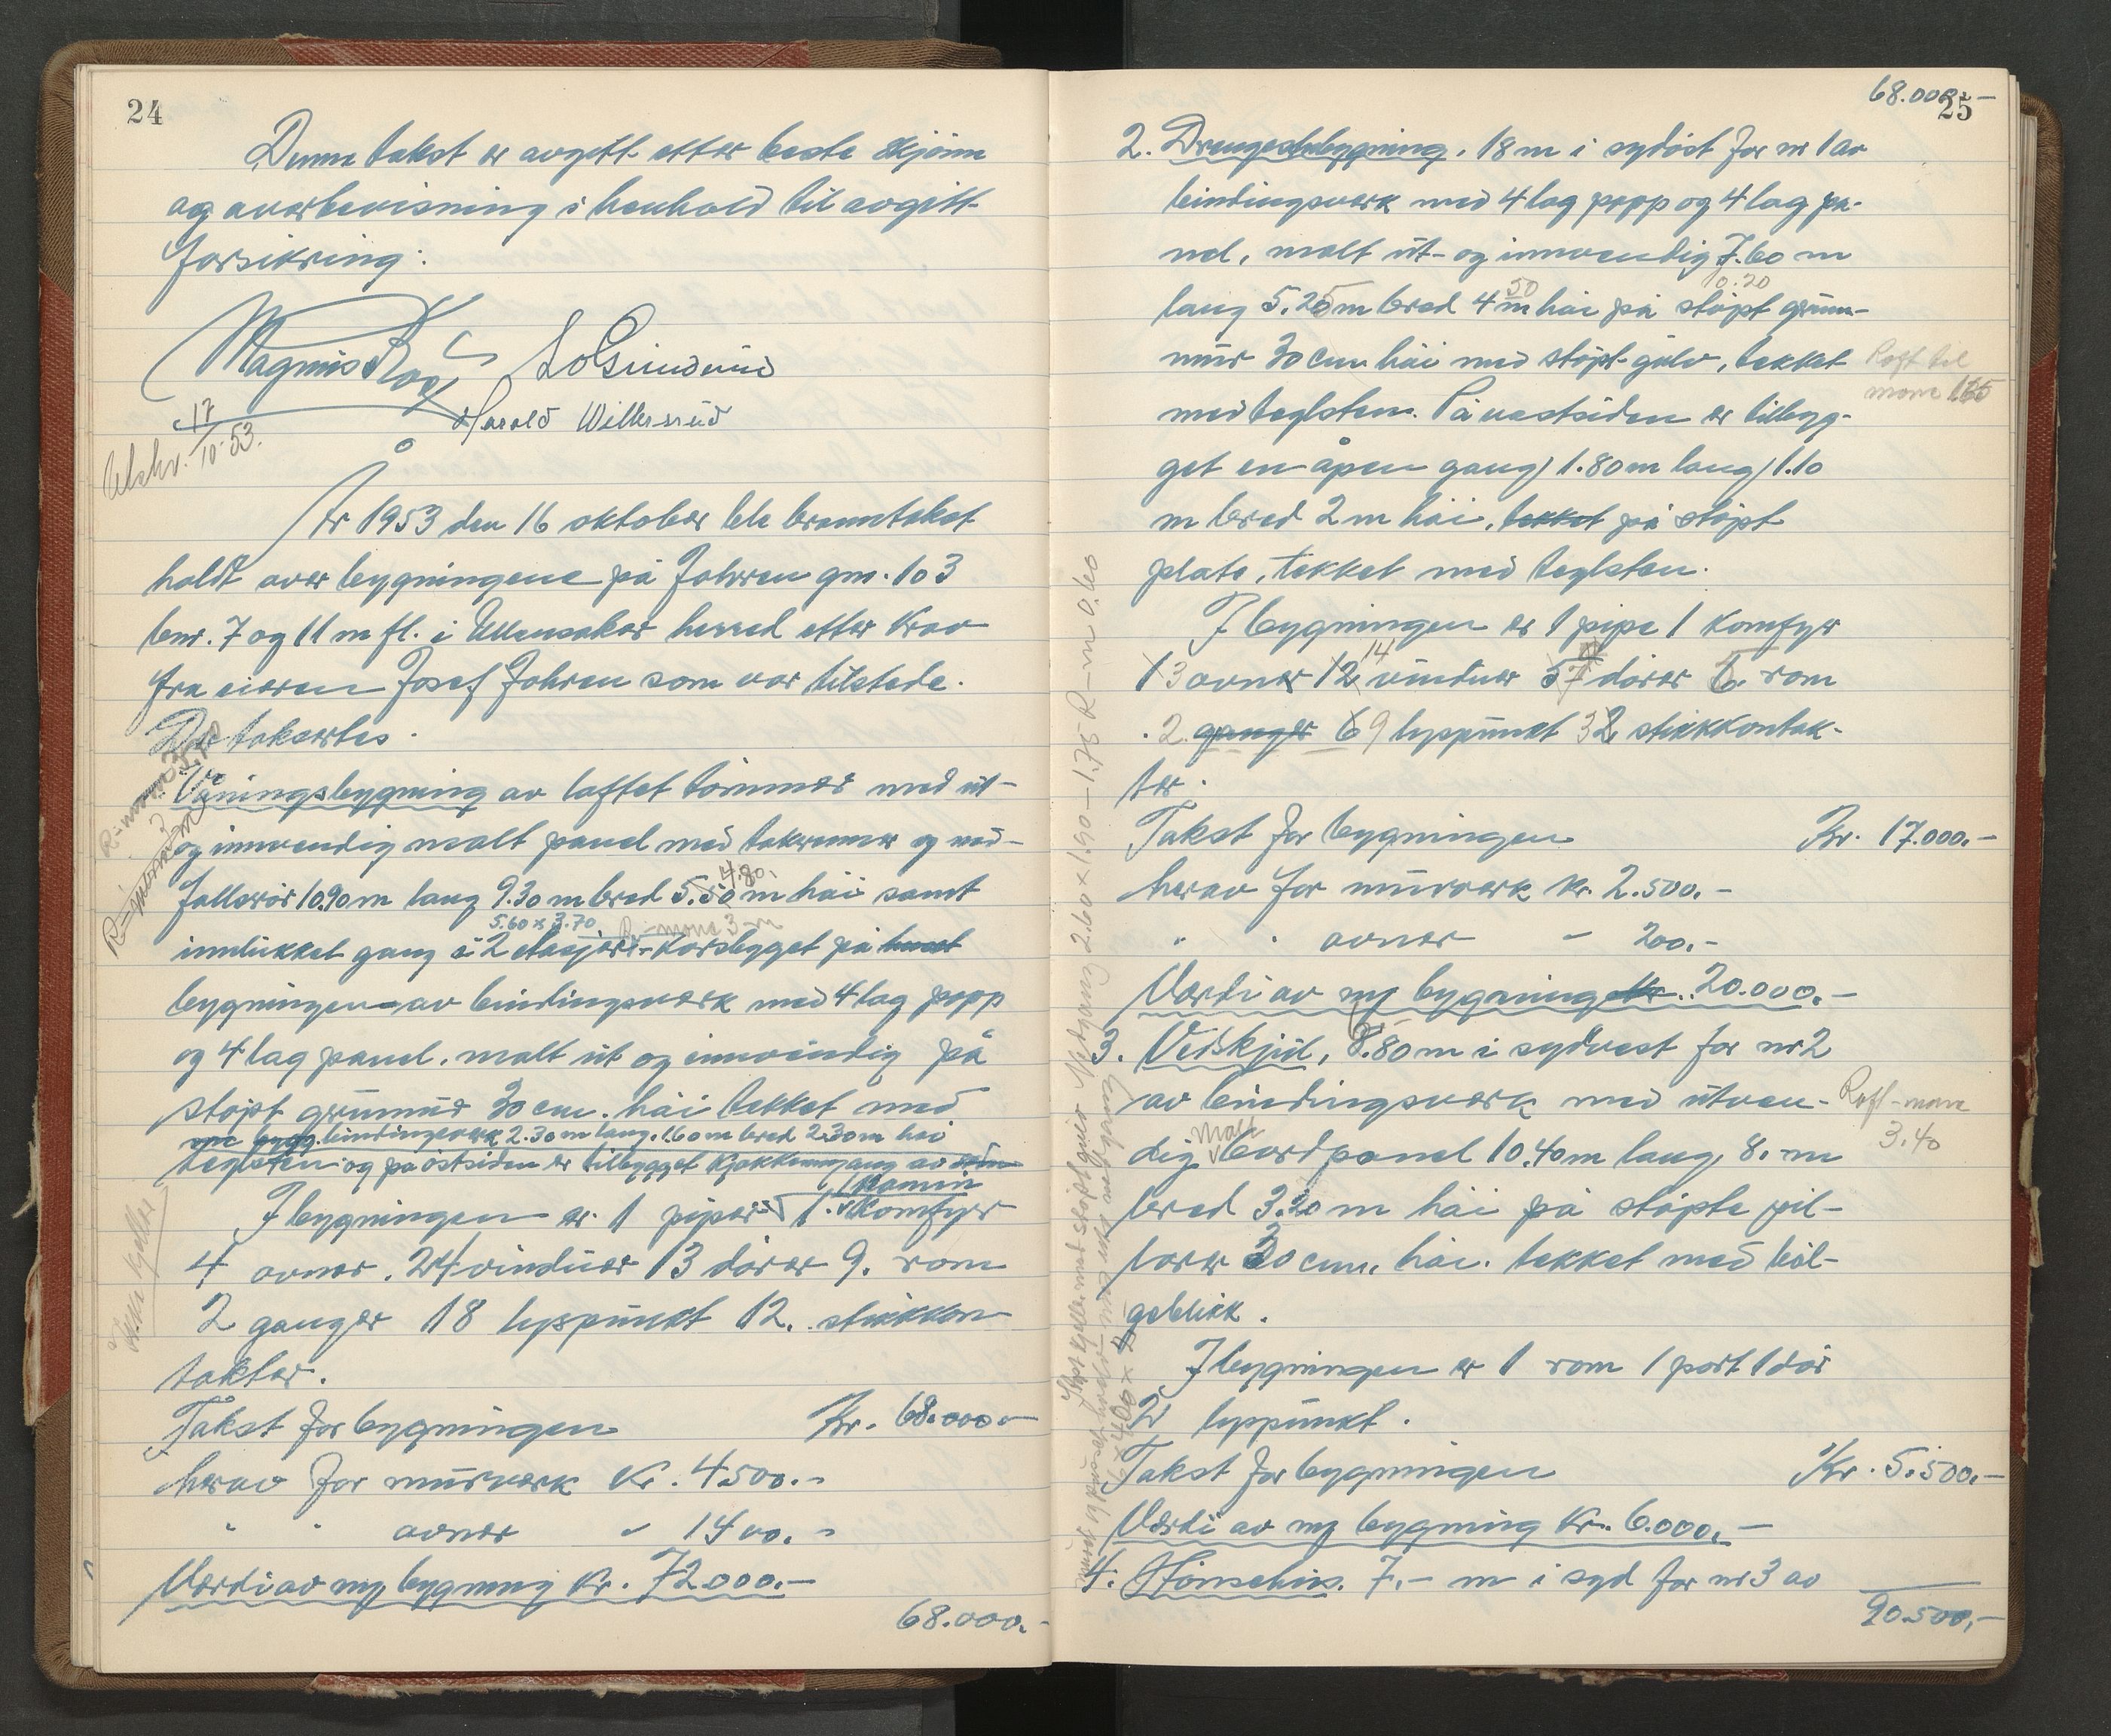 24
Denne takst er avgitt etter beste skjönn
og overbevisning i henhold til avgitt
forsikring:
Magnus Roos
Harald Willersrud
Utskr. 17/10-53.
År 1953 den 16 oktober ble branntakst
holdt over bygningene på Johren gnr. 103
bnr. 7 og 11 m fl. i Ullensaker herred etter krav
fra eieren Josef Johren som var tilstede.
Der taksertes.
Våningsbygning av laftet tömmer med ut-
og innvendig malt panel med takrenner og ned-
fallsrör 10.90 m lang 9.30 m bred 5.50 m håi samt
4.80.
5.60 x 3.70. R-möne 3 m
innlukket gang i 2 etasjer-korsbygget på huset
bygningen-av bindingsverk med 4 lag papp
og 4 lag panel. malt ut og innvendig på
stöpt grunmur 30 cm. håi tekket med
bindingsverk 2.30 m lang. 1.60 m bred 2.30 m håi
teglsten og på östsiden er tilbygget kjökkenngang av
1 kamin
I bygningen er 1 piper 1. komfyr
4 ovner. 24 vinduer 13 dörer 9. rom
2 ganger 18 lyspunkt 12. stikkkon
takter.
Ikke kjeller
Takst for bygningen Kr. 68.000.-
herav for murverk Kr. 4.500.-
" " ovner " 1400.-
Verdi av ny bygning Kr. 72.000.-
68.000.-
68.000.-
25
2. Drengestubygning. 18 m i sydöst for nr 1 av
bindingsverk med 4 lag papp og 4 lag pa-
nel, malt ut- og innvendig 7.60 m
10.20
lang 5.25 m bred 4 m håi på stöpt grunn-
50
mur 30 cm håi med stöpt gulv, tekket
Röft til
möne 1.65
med teglsten. På vestsiden er tilbyg-
get en åpen gang) 1.80 m lang) 1.10
m bred 2 m håi, tekket på stöpt
plate, tekket med teglsten.
I bygningen er 1 pipe 1 komfyr
14
13 ovner 12 vinduer 57 dörer 6. rom
2 ganger 69 lyspunkt 32 stikkkontak-
ter.
Takst for bygningen Kr. 17.000.-
herav for murverk kr. 2.500.-
" " ovner " 200.-
Verdi av ny bygning kr. 20.000.-
3. Vedskjul, 8.80 m i sydvest for nr 2
av bindingsverk med utven-
Röft-möne
3.40
dig bordpanel 10.40 m lang, 8. m
malt
bred 3.20 m håi på stöpte pil-
larer 30 cm. håi. tekket med böl-
geblikk.
I bygningen er 1 rom 1 port 1 dör
2 lyspunkt.
Takst for bygningen Kr. 5.500.-
Verdi av ny bygning kr. 6.000.-
4. Hönsehus. 7.- m i syd for nr 3 av
90.500.-